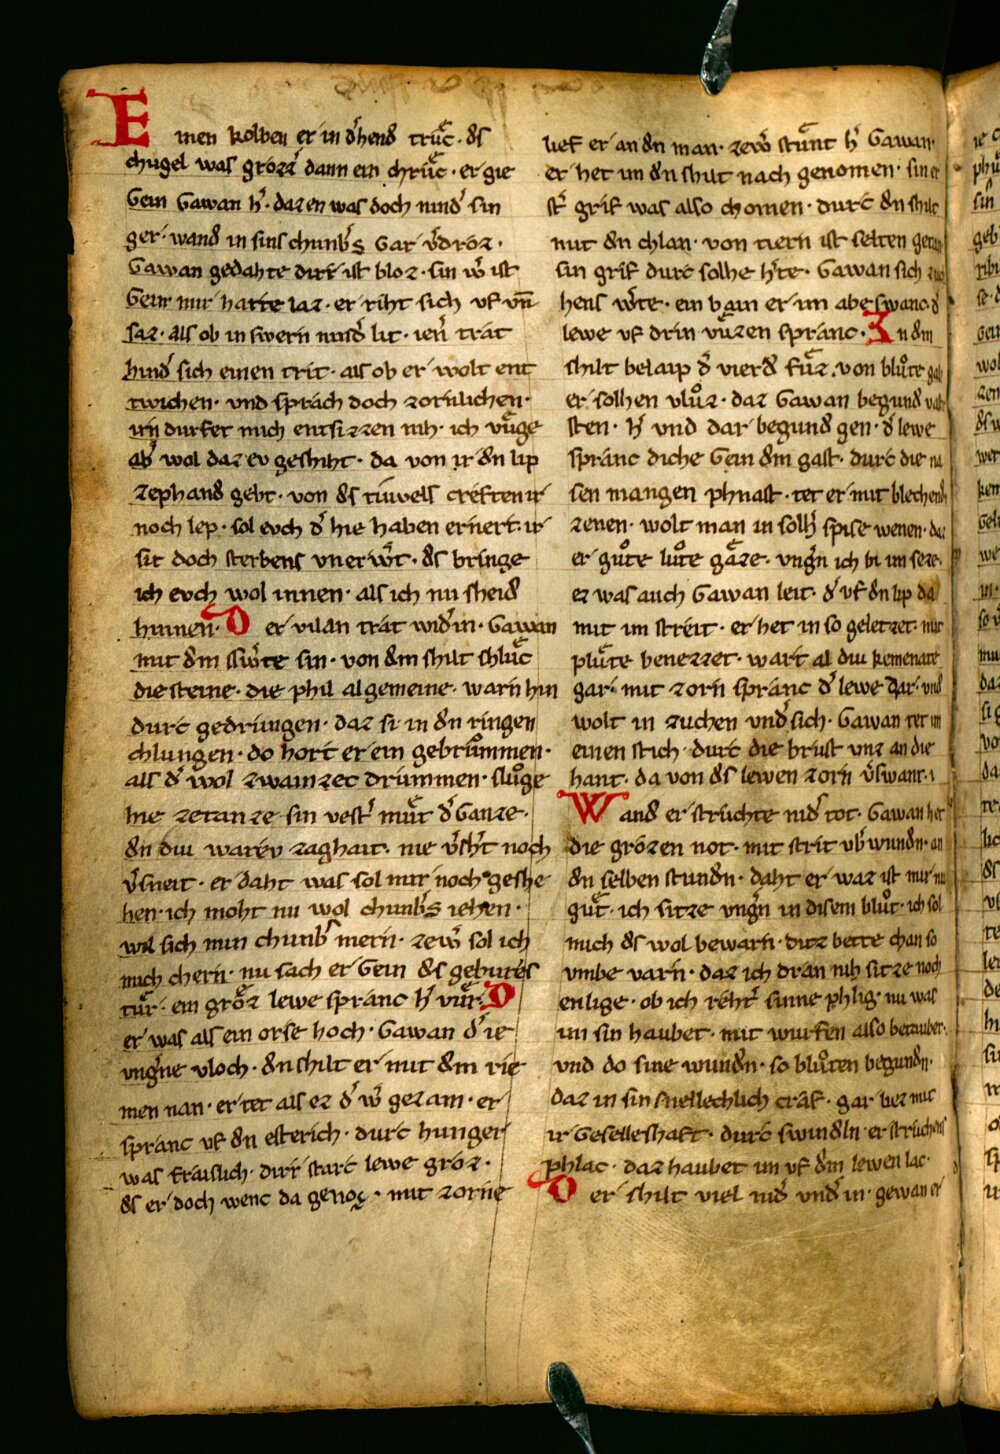 Einen kolben er in d͛ hend truͤc · ds
chugel was grozz͛ dann ein chruͤc · er gie
Gein Gawan h͛ · daz en was doch nind͛ sin
ger · wand in sins chunb͛s Gar v͛droz ·
Gawan gedahte dirr ist bloz · sin w͛ ist
Geîn mir harte laz · er riht sich uf vn̄
saz · als ob in swern nind͛ lit · ien͛ trat
hind͛ sich einen trit · als ob er wolt ent
twichen · und sprach doch zornlichen ·
irn durfet mich entsizzen niht · ich vuͤge
ab͛ wol daz ev geshiht · da von ir dn lip
zephand gebt · von ds tiuwels creften ir
noch lep · sol evch d͛ hie haben ernert · ir
sit doch sterbens vnerw͛t · ds bringe
ich evch wol innen · als ich nu sheid
hinnen · Der vilan trat wid͛ in · Gawan
mit dm sw͛te sin · von dm shilt shluͤc
die steine · die phil algemeine · warn hin
durc gedrungen · daz si in dn ringen
chlungen · do hort er ein gebruͦmmen ·
als d͛ wol zwainzec drummen · sluͦge
hie zetanze sin vest͛ muͤt d͛ Ganze ·
dn diu warev zaghait · nie v͛sh͛t noch
v͛sneit · er daht was sol mir noch geshe
hen · ich moht nu wol chunb͛s iehen ·
wil sich min chunb͛ mern · zew͛ sol ich
mich chern · nu sach er Gein ds gebures
tuͤr · ein groͤz lewe spranc h͛ vuͤr · D
er was als ein orse hoch · Gawan d͛ ie
vng͛ne vloch · dn shilt er mit dm rie
men nan · er tet als ez d͛ w͛ gezam · er
spranc uf dn esterich · durc hunger
was fraislich · dirr starc lewe groz ·
ds er doch wenc da genoz · mit zorne
lief er an dn man · zew͛ stuͤnt h͛ Gawan ·
er het im dn shilt nach genomen · sin er
st͛ grif was also chomen · durc dn shilt
mit dn chlan · von tiern ist selten getan
sin grif durc solhe h͛te · Gawan sich zuc
hens w͛te · ein bain er im abe swanc · d͛
lewe uf drin vuͤzen spranc · In dm
shilt belaip d͛ vierd fuͤz · von bluͦte gab
er solhen vluͦz · daz Gawan begund vas
sten · h͛ und dar begund gen · d͛ lewe
spranc diche Gein dm gast · durc die na
sen mangen phnast · tet er mit blechend͛
zenen · wolt man in solh͛ spise wenen · daz
er guͦte luͦte gaͤze · vng͛n ich bi im seze ·
ez was auch Gawan leit · d͛ uf dn lip da
mit im streit · er het in so geletzet · mit
pluͤte benezzet · wart al diu kemenate
gar · mit zorn spranc d͛ lewe dar · und
wolt in zuchen und͛ sich · Gawan tet im
einen stich · durc die brust unz an die
hant · da von ds lewen zorn v͛swant ·
Wand er struchte nid͛ tot · Gawan het
die grozen not · mit strit ub͛wundn · an
dn selben stundn · daht er waz ist mir nu
guͤt · ich sitze vng͛n in disem bluͦt · ich sol
mich ds wol bewarn · diz bette chan so
vmbe varn · daz ich dran niht sitze noch
enlige · ob ich reht͛ sinne phlig · nu was
im sin haubet · mit wurfen also betaubet ·
und do sine wundn · so bluͦten begundn ·
daz in sin snellechlich craf · gar liez mit
ir Geselleshaft · durc swindln er struchens
phlac · daz haubet im uf dm lewen lac ·
Der shilt viel nid͛ und͛ in · gewan er